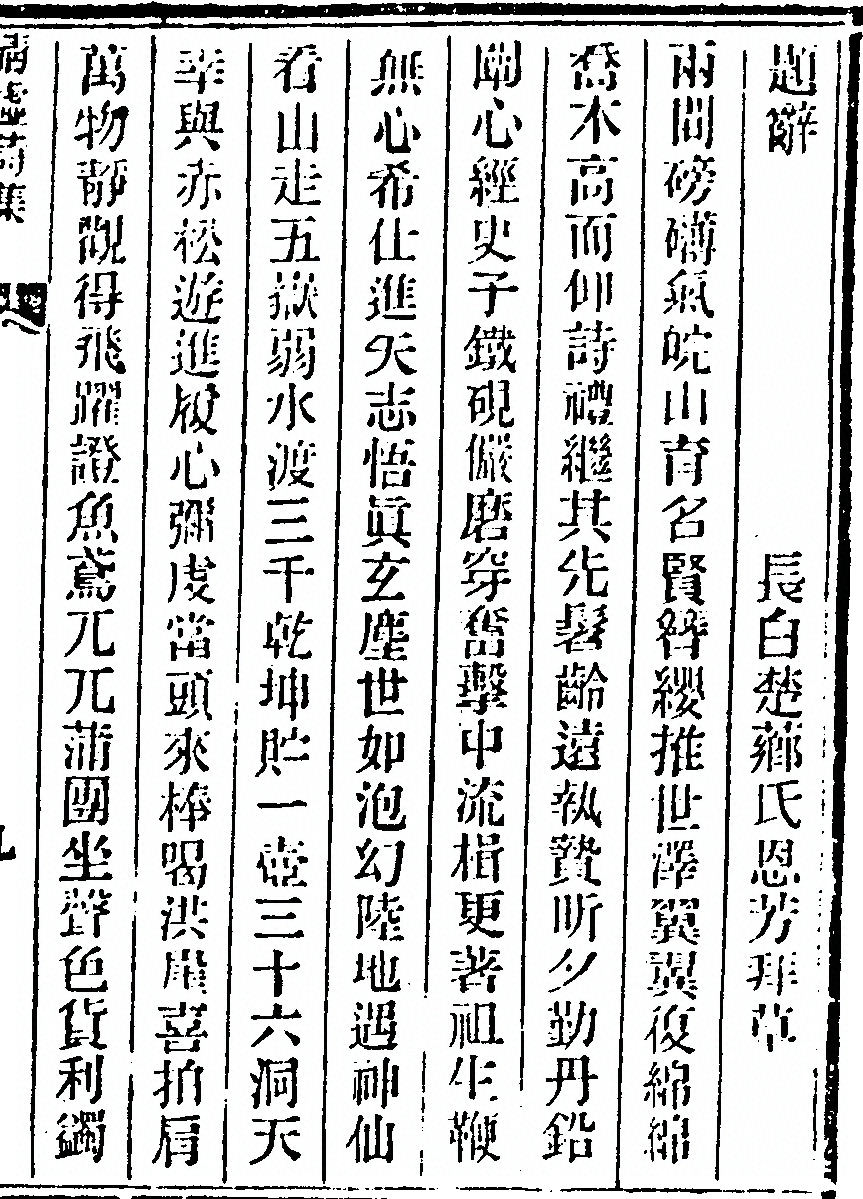 題辭
長白楚薌氏恩芳拜草
兩間磅礴氣皖山育名賢簪纓推世澤翼翼復綿綿
喬木高而仰詩禮繼其先髫齡遠執贄昕夕勤丹鉛
闌心經史子鐵硯儼磨穿奮擊中流楫更著祖生鞭
無心希仕進矢志悟眞玄塵世如泡幻陸地遇神仙
看山走五嶽弱水渡三千乾坤貯一壺三十六洞天
幸與赤松遊進履心彌虔當頭來棒喝洪崖喜拍肩
萬物靜觀得飛躍證魚鳶兀兀蒲團坐聲色貨利蠲
詩集
九